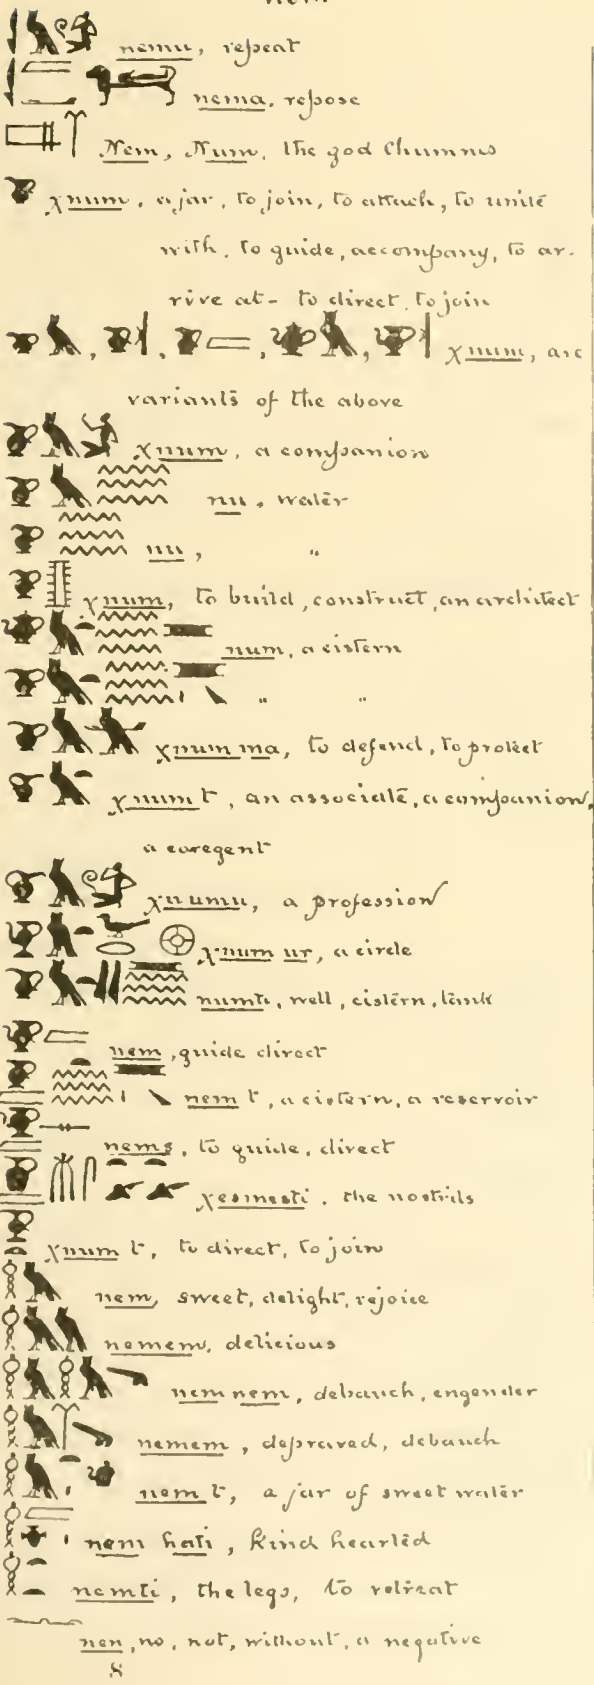 nem
nemu, repeat
nema, repose
Nem, Num, the god Chumnus
χnum, a jar, to join, to attach, to unite
with, to guide, accompany, to ar-
rive at - to direct, to join
χnum, are
variants of the above
χnum, a companion
nu, water
nu, "
χnum, to build, construct, an architect
num, a cistern
" "
χnum ma, to defend, to protect
χnum t, an associate, a companion,
a coregent
χnumu, a profession
χnum ur, a circle
numti, well, cistern, tank
nem, guide direct
nem t, a cistern, a reservoir
nems, to guide, direct
χesmesti, the nostrils
χnum t, to direct, to join
nem, sweet, delight, rejoice
nemem, delicious
nem nem, debauch, engender
nemem, depraved, debauch
nem t, a jar of sweet water
nem hati, kind hearted
nemti, the legs, to retreat
nen, no, not, without, a negative
8